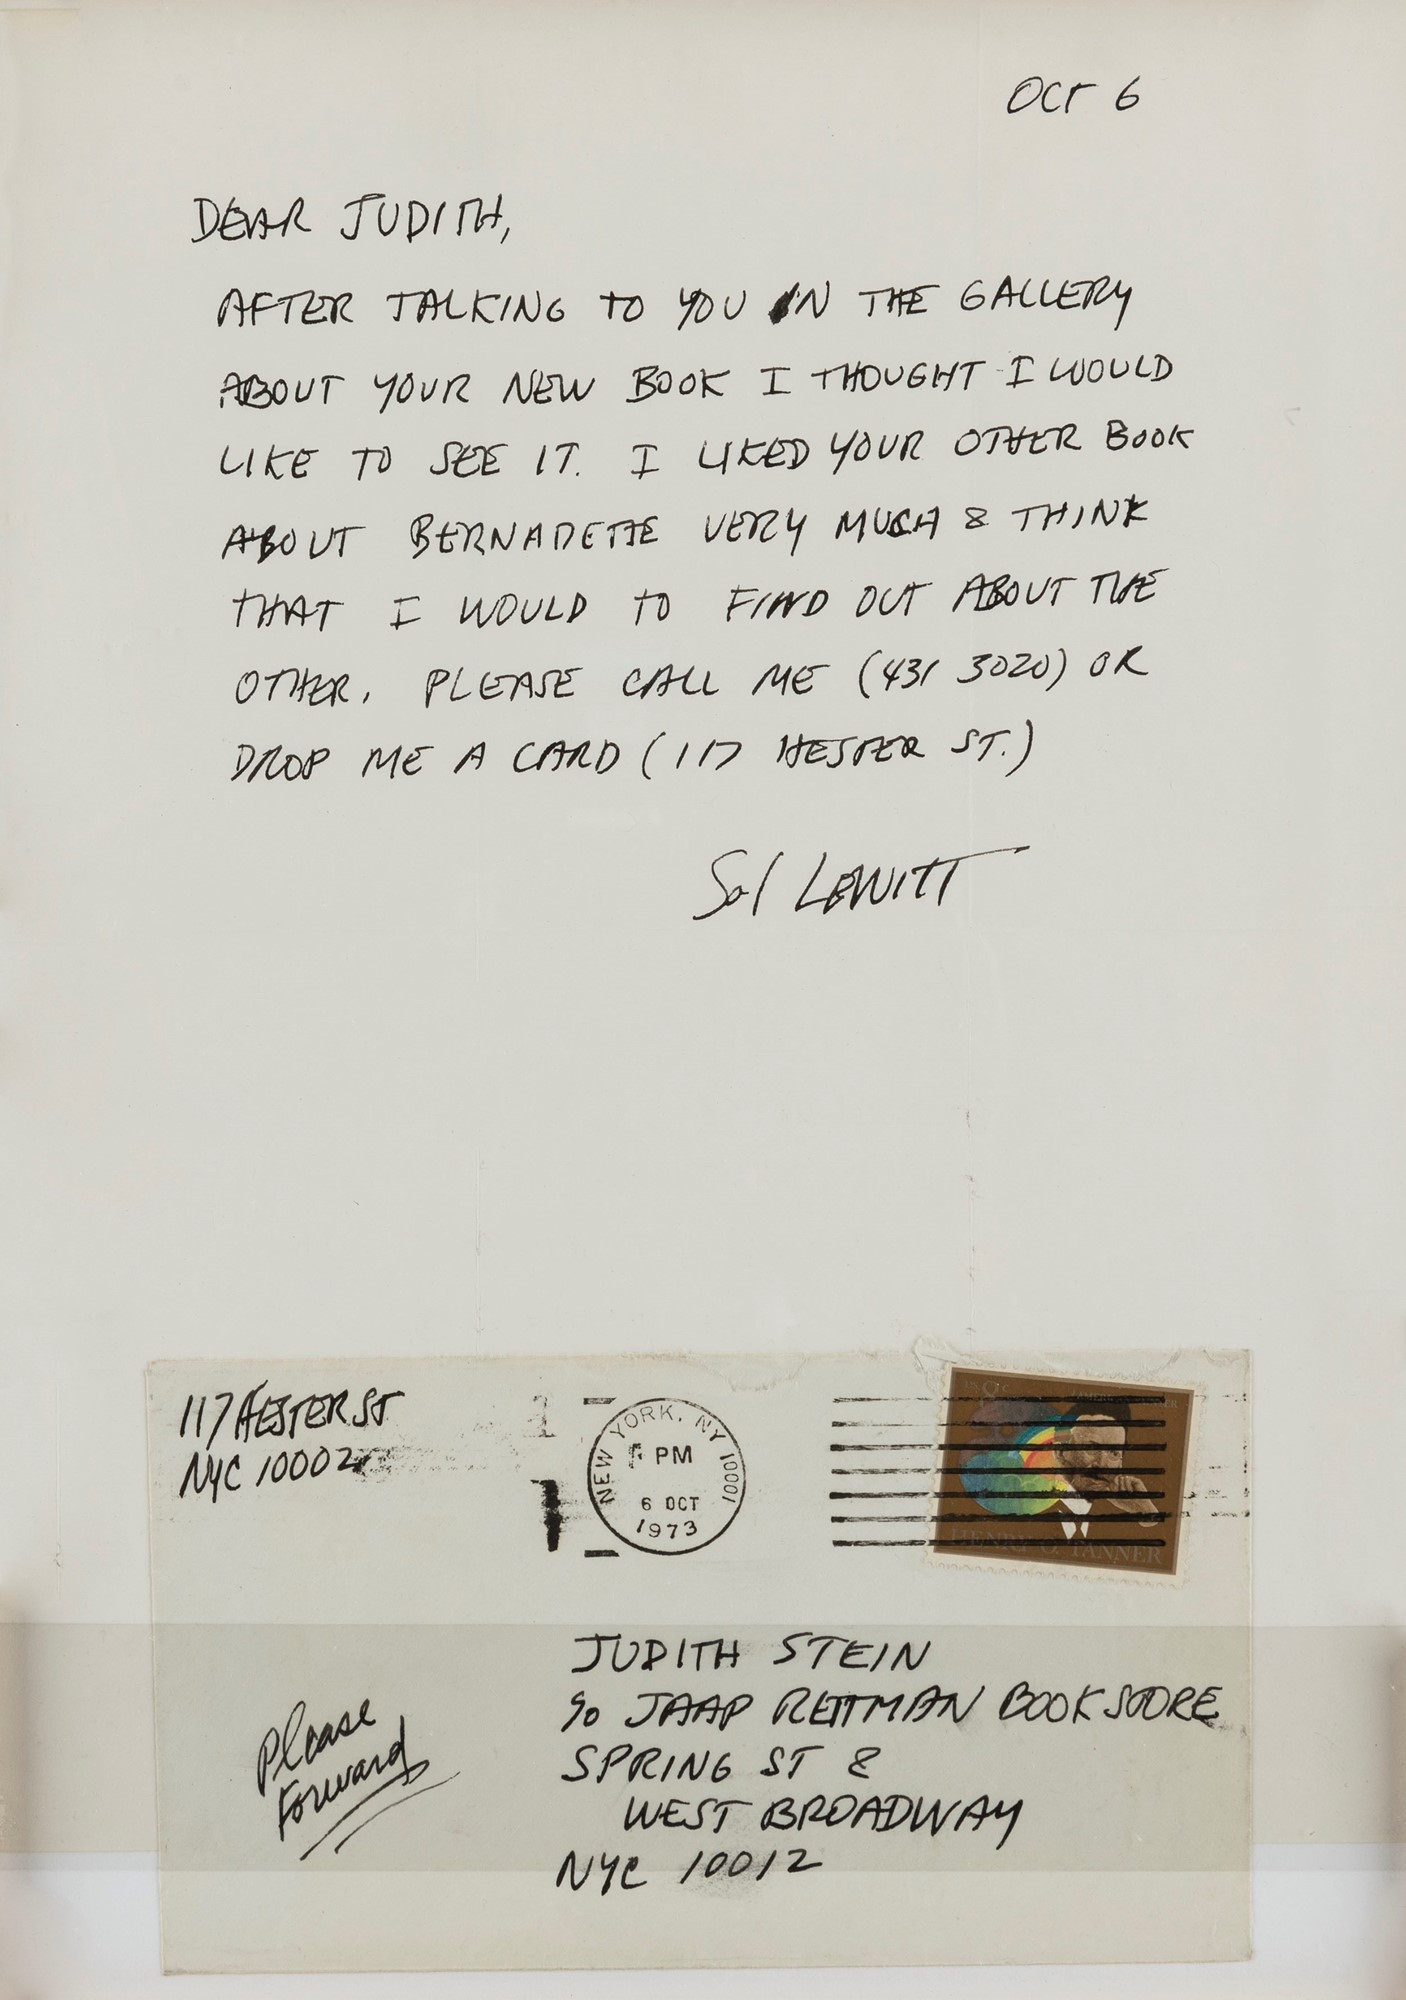 OCT 6
DEAR JUDITH,
AFTER TALKING TO YOU IN THE GALLERY
ABOUT YOUR NEW BOOK I THOUGHT I WOULD
LIKE TO SEE IT. I LIKED YOUR OTHER BOOK
ABOUT BERNADETTE VERY MUCH & THINK
THAT I WOULD TO FIND OUT ABOUT THE
OTHER. PLEASE CALL ME (431 3020) OR
DROP ME A CARD (117 HESTER ST.)
Sol LEWITT
117 HESTER ST
NYC 10002
NEW YORK, NY 10001
PM
6 OCT
1973
US 8c
HENRY O. TANNER
JUDITH STEIN
c/o JAAP REITMAN BOOKSTORE
SPRING ST &
WEST BROADWAY
NYC 10012
Please
Forward